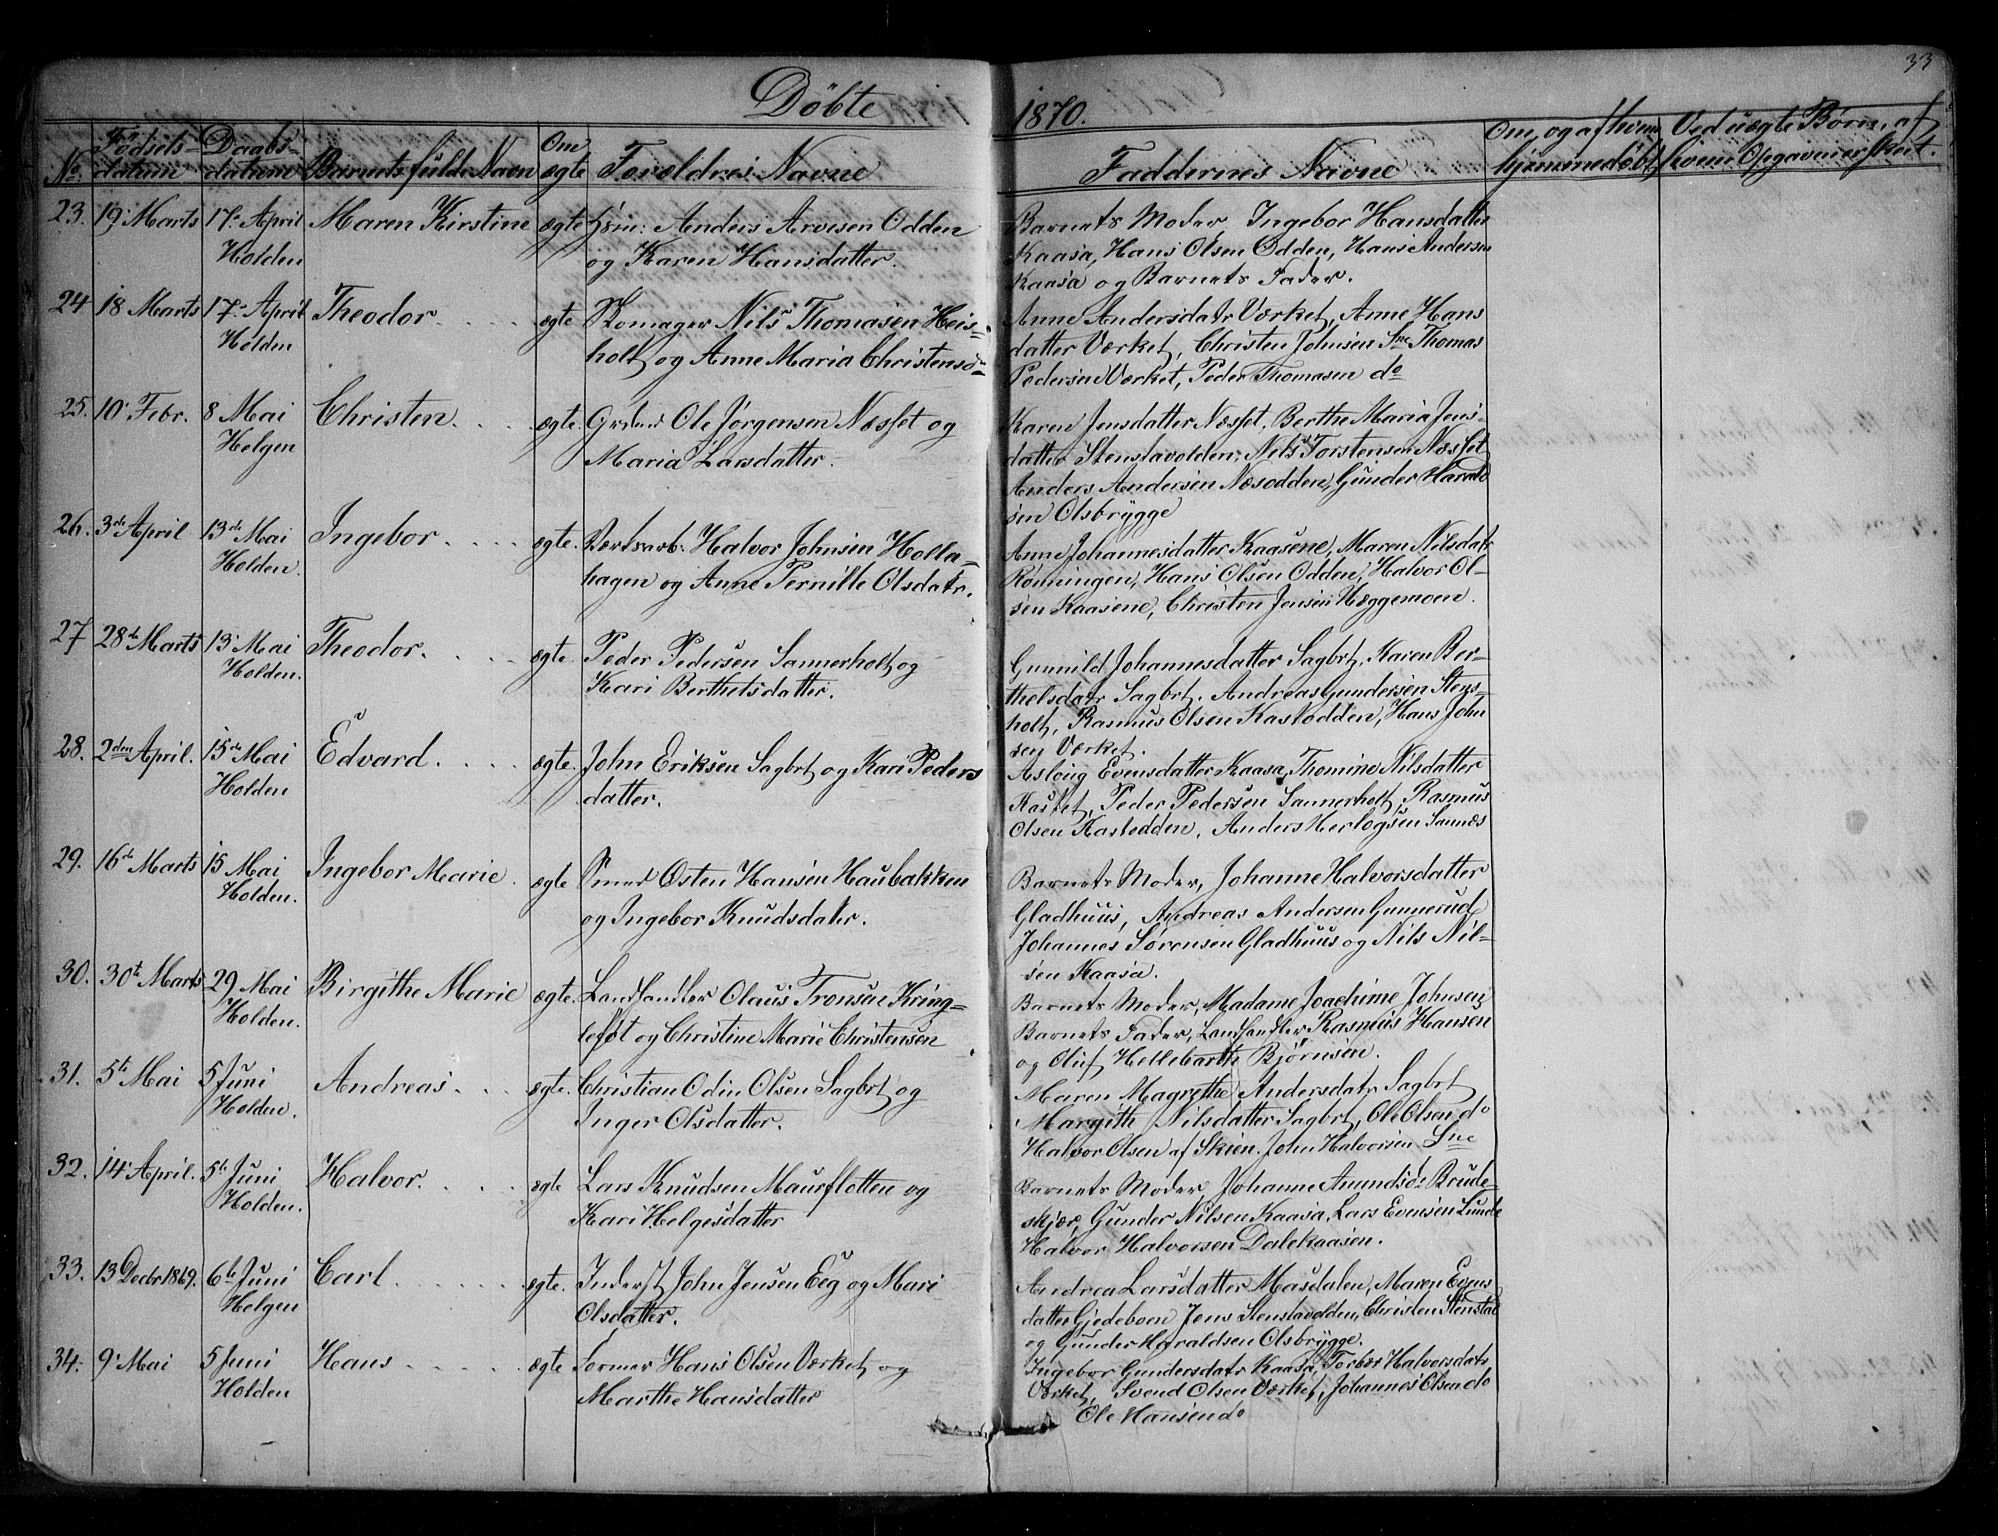 Döbte 1870.
33
No. Fødselsdatum Daabsdatum Barnets fulde Navn Om ægte Forældres Navne Faddernes Navne Om, og af hvem hjemmedøbt Ved uægte Børn, af hvem Opgaven er skeet.
23. 19 Marts 17. April Holden Maren Kirstine ægte Anders Arvesen Odden
og Karen Hansdatter.
Barnets Moder, Ingebor Hansdatter
Kaasa, Hans Olsen Odden, Hans Andersen
Kaasa og Barnets Fader.
24 18 Marts 17. April Holden Theodor ægte Skomager Nils Thomasen Heis-
holt og Anne Maria Christensd
Anne Andersdatr Værket, Anne Hans
datter Værket, Christen Johnsen Sne Thomas
Pedersen Værket, Peder Thomasen do
25. 10 Febr. 8 Mai Helgen Christen ægte. Ole Jørgensen Næsset og
Maria Larsdatter.
Karen Jensdatter Næsset, Berthe Maria Jens-
datter Stenstavolden, Nils Torstensen Næsset
Anders Andersen Næsodden, Gunder Harald
sen Olsbrygge
26. 3de April 13de Mai Holden. Ingebor ægte. Halvor Johnsen Holla-
hagen og Anne Pernille Olsdatr.
Anne Johannesdatter Kaasene, Maren Nilsdatr
Rønningen, Hans Olsen Odden, Halvor Ol-
sen Kaasene, Christen Jensen Hæggemoen.
27 28de Marts 13 Mai Holden. Theodor. ægte. Peder Pedersen Sannerholt og
Kari Berthelsdatter.
Gunnild Johannesdatter Sagbrt, Karen Ber-
thelsdatr Sagbrt. Andreas Gundersen Stens-
holt, Rasmus Olsen Kastodden, Hans John
sen Værket.
28. 2den April. 15de Mai Holden Edvard. ægte. John Eriksen Sagbrt og Kari Peders
datter.
Asloug Evensdatter Kaasa, Thomine Nilsdatter
Kastet, Peder Pedersen Sannerholt, Rasmus
Olsen Kastodden, Anders Herlogsen Sannæs
29. 16de Marts 15 Mai Holden. Ingebor Marie. ægte Smed Østen Hansen Haubakken
og Ingebor Knudsdater.
Barnets Moder, Johanne Halvorsdatter
Gladhuus, Andreas Andersen Gunnerud
Johannes Sørensen Gladhuus og Nils Nil-
sen Kaasa.
30. 30t Marts 29 Mai Holden. Birgithe Marie ægte. Landhandler Olaus Tronsen Kring-
lefot og Christine Marie Christensen
Barnets Moder, Madame Joachime Johnsen
Barnets Fader, Landhandler Rasmus Hansen
og Oluf Hellebarth Bjørnsen.
31. 5te Mai 5 Juni Holden. Andreas. ægte. Christian Odin Olsen Sagbrt og
Inger Olsdatter.
Maren Magrethe Andersdatr Sagbrt
Margith Nilsdatter Sagbrt, Ole Olsen do
Halvor Olsen af Skien. John Halvorsen Sne
32. 14 April. 5te Juni Holden. Halvor. ægte Lars Knudsen Maurflotten og
Kari Helgesdatter
Barnets Moder, Johanne Amundsd Brude-
skjær, Gunder Nilsen Kaasa, Lars Evensen Lunde
Halvor Halvorsen Dalekaasen.
33. 13 Decbr 1869. 6te Juni Helgen Carl ægte. Inderst John Jensen Eeg og Mari
Olsdatter.
Andrea Larsdatter Masdalen, Maren Evens
datter Gjedeboen Jens Stenstavolden, Christen Stenstad
og Gunder Haraldsen Olsbrygge.
34. 9 Mai 5 Juni Holden Hans ægte Former Hans Olsen Værket og
Marthe Hansdatter
Ingebor Gundersdatr Kaasa, Torbør Halvorsdatr
Værket, Svend Olsen Værket, Johannes Olsen do
Ole Hansen do